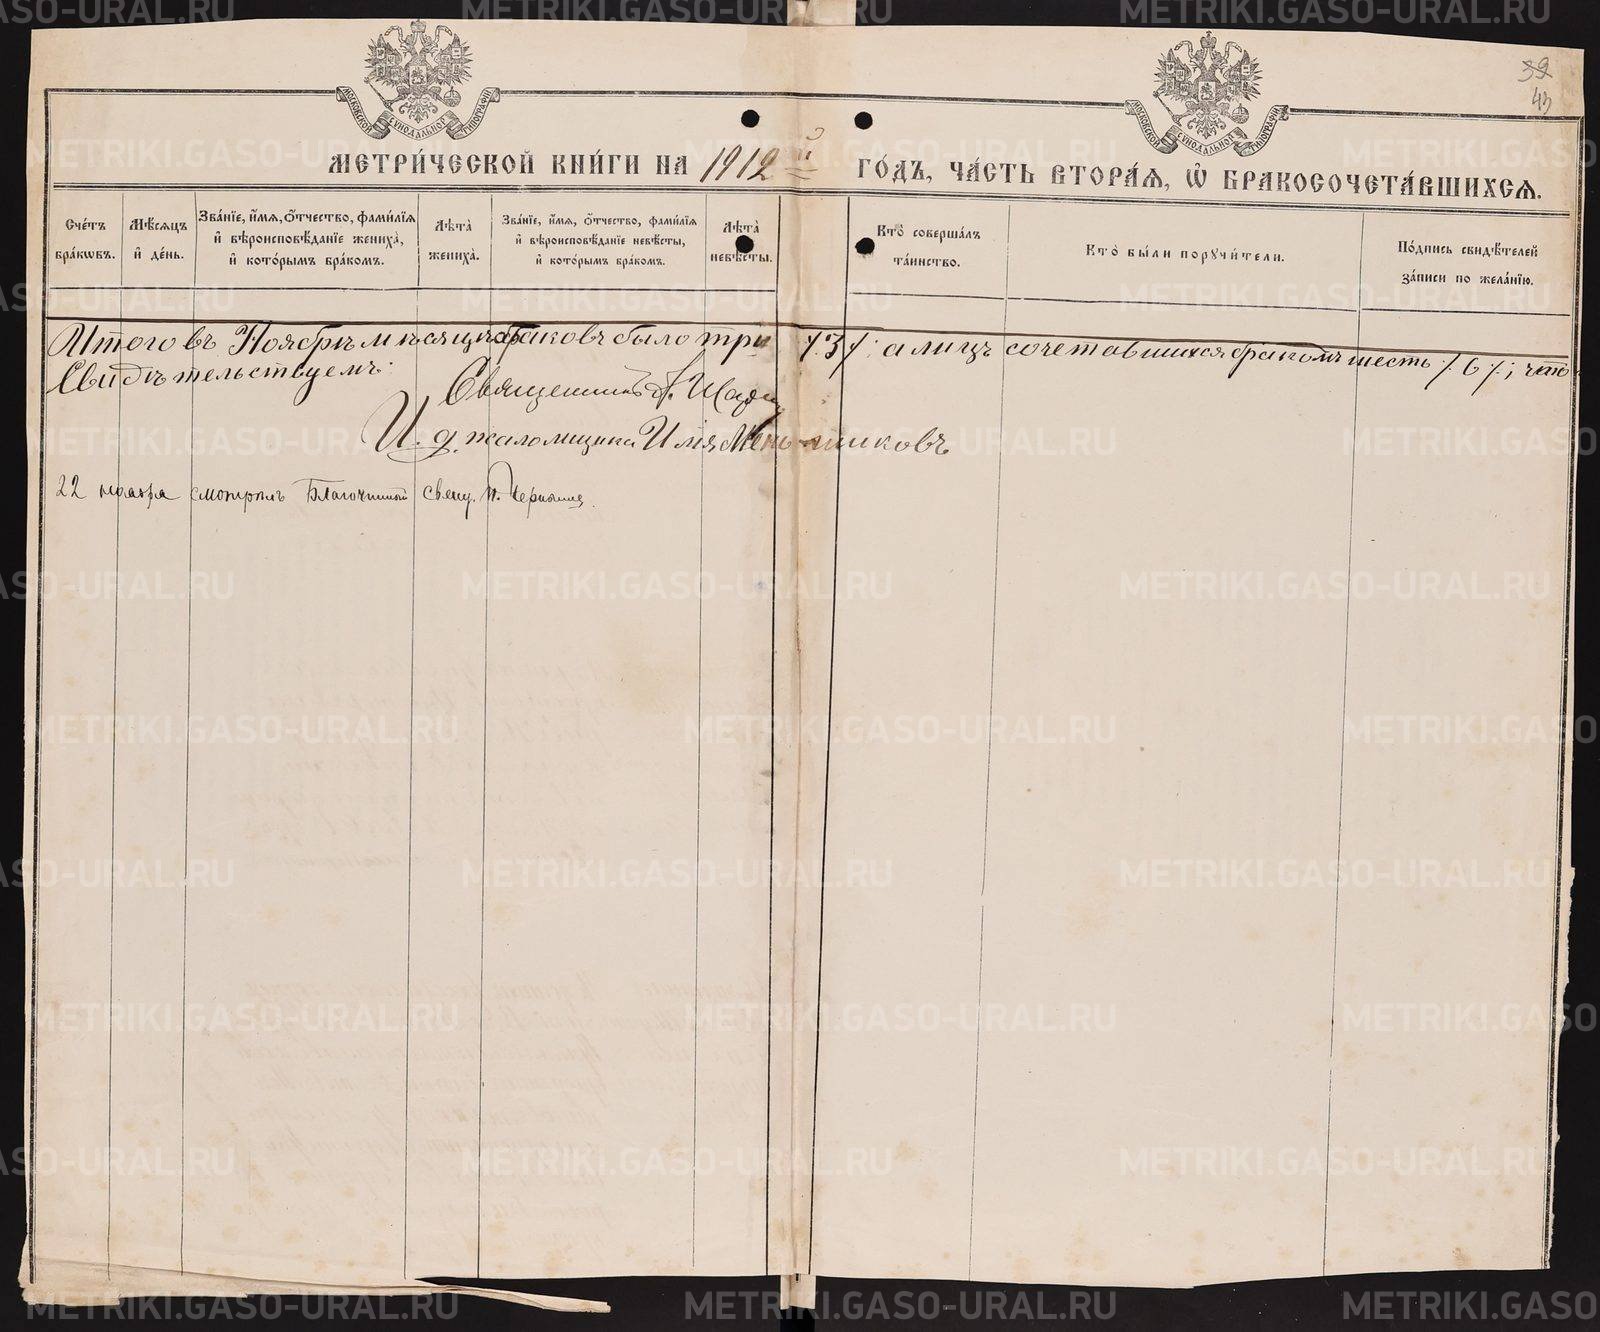 МОСКОВСКОЙ СѴНОДАЛЬНОЙ ТИПОГРАФІИ
МОСКОВСКОЙ СѴНОДАЛЬНОЙ ТИПОГРАФІИ
39
43
МЕТРИ́ЧЕСКОЙ КНИ́ГИ НА 1912 й ГО́ДЪ, ЧА́СТЬ ВТОРА́Ѧ, Ѽ БРАКОСОЧЕТА́ВШИХСѦ.
Сче́тъ бра́кѡвъ.
Мѣ́сѧцъ и҆ де́нь.
Зва́нїе, и҆́мѧ, ѻ҆́тчество, фами́лїѧ и҆ вѣроисповѣ́данїе жениха̀, и҆ кото́рымъ бра́комъ.
Лѣ́та жениха̀.
Зва́нїе, и҆́мѧ, ѻ҆́тчество, фами́лїѧ и҆ вѣроисповѣ́данїе невѣ́сты, и҆ кото́рымъ бра́комъ.
Лѣ́та невѣ́сты.
Кто̀ соверша́лъ та́инство.
Кто̀ бы́ли порꙋчи́тели.
По́дпись свидѣ́телей за́писи по жела́нїю.
Итого въ Ноябрѣ мѣсяцѣ браковъ было три /:3:/ а лицъ сочетавшихся бракомъ шесть /:6:/; что
Свидѣтельствуемъ:
Священникъ
И. д. псаломщика Илія Меньшиковъ
22 ноября смотрѣлъ Благочинный свящ.
METRIKI.GASO-URAL.RU